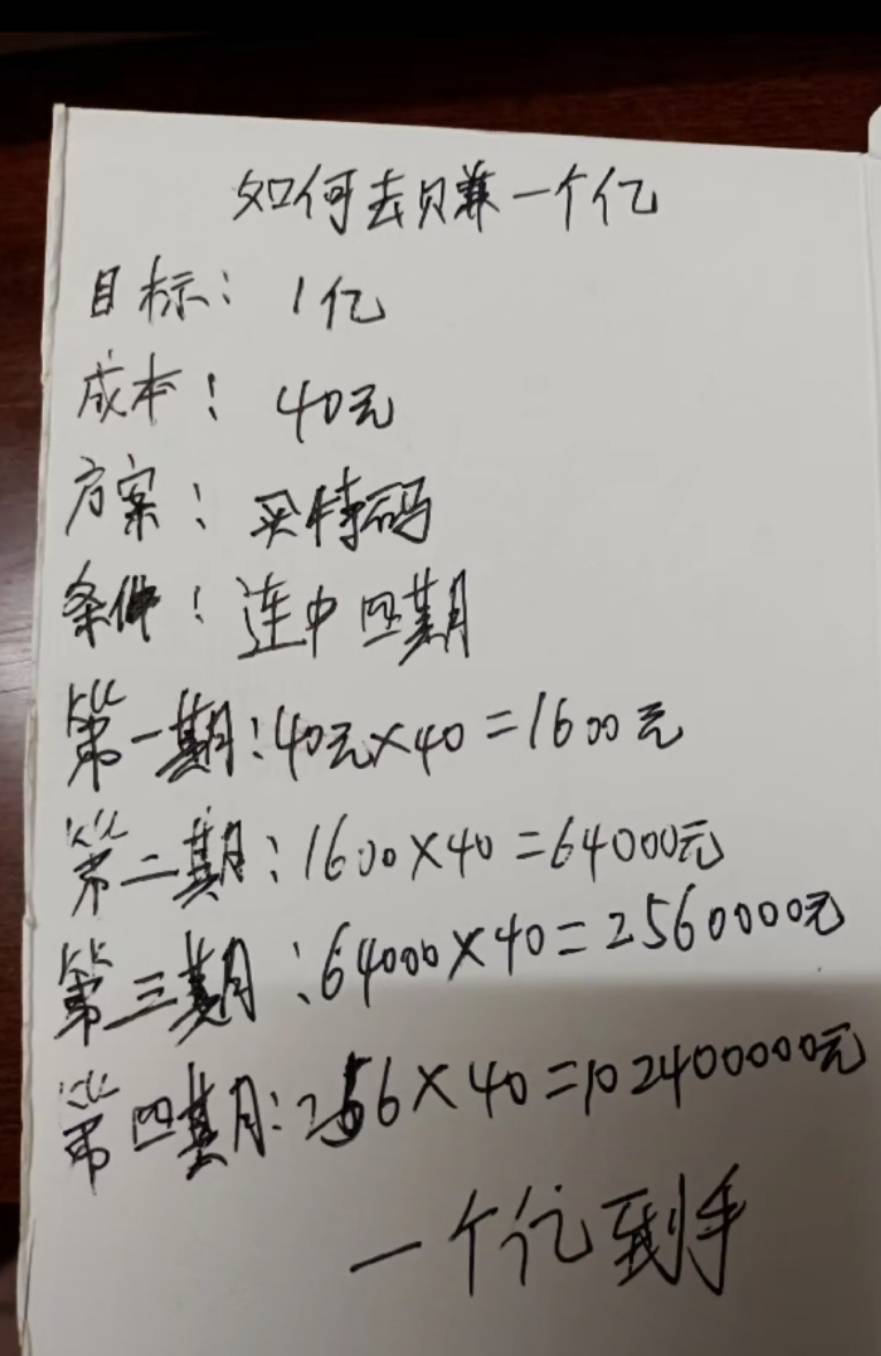 如何去赚一个亿
目标：1亿
成本：40元
方案：买特码
条件：连中四期
第一期：40元×40=1600元
第二期：1600×40=64000元
第三期：64000×40=2560000元
第四期：256×40=102400000元
一个亿到手